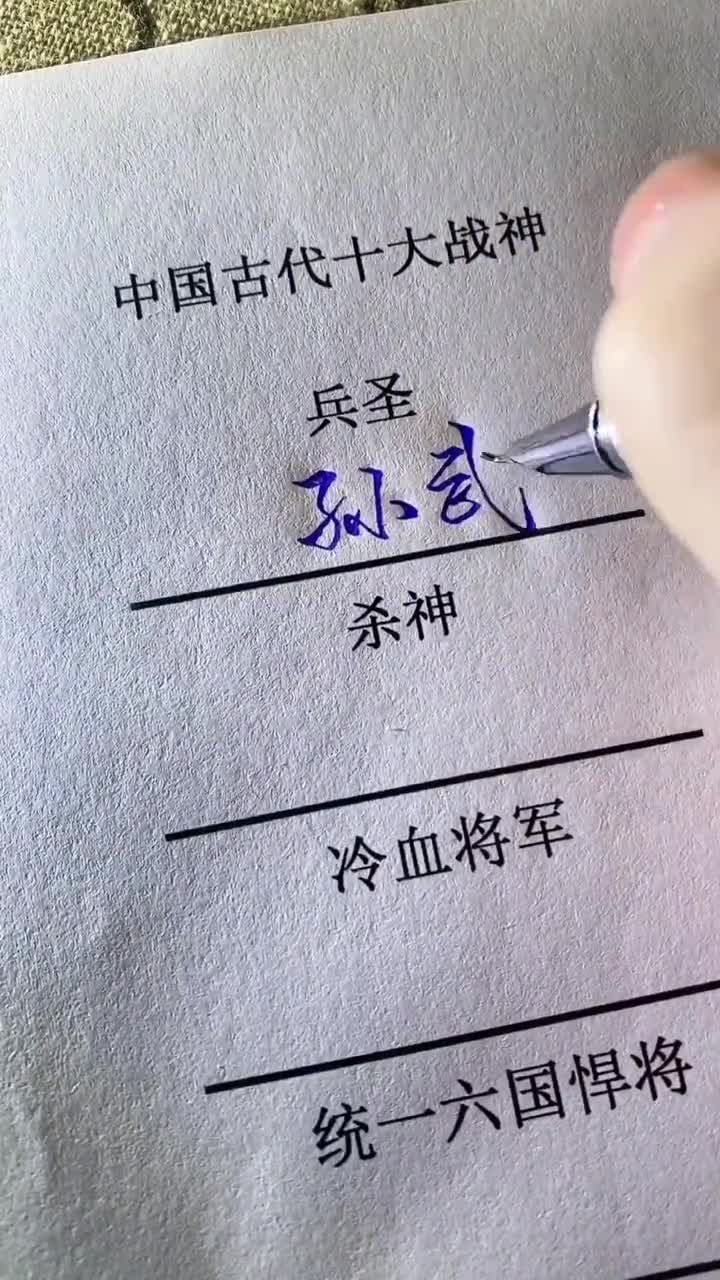 中国古代十大战神
兵圣
孙武
杀神
冷血将军
统一六国悍将